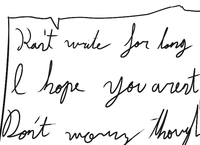 Kan't write for long
I hope you arent
Don't worry though